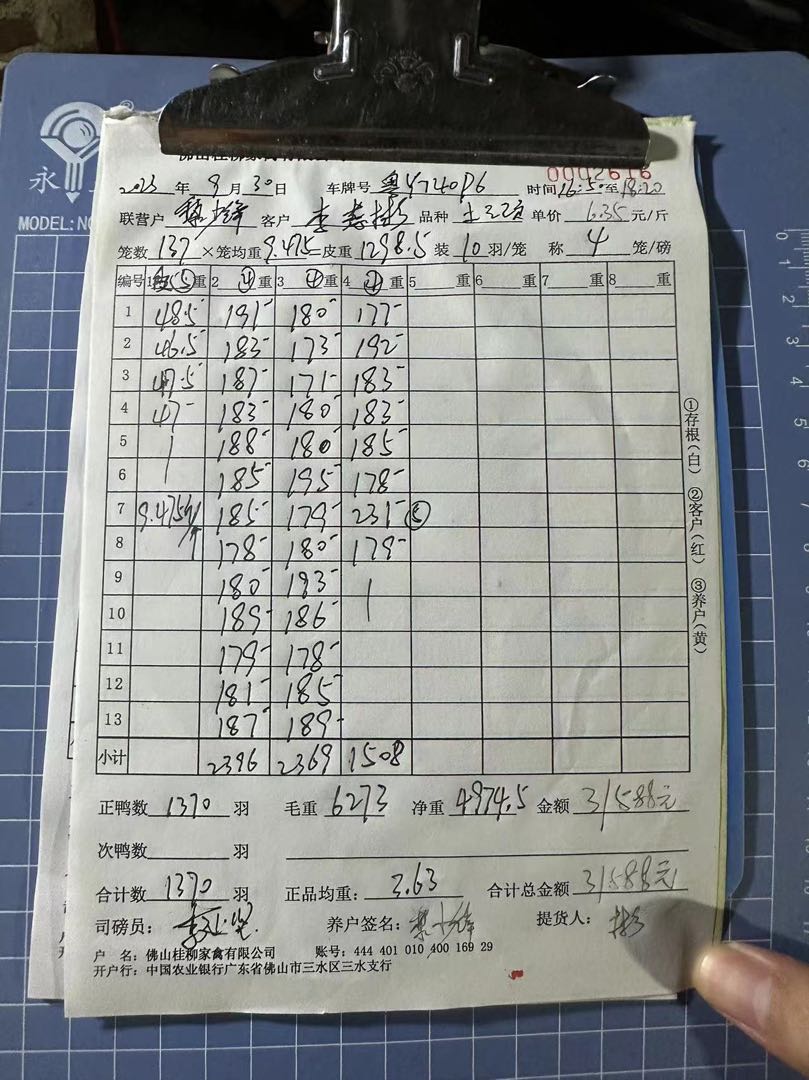 永
MODEL:NO
0042616
2023 年 9 月 30 日 车牌号 粤Y740P6 时间 16:50至18:20
联营户 客户 品种 土 单价 6.35 元/斤
笼数 137 ×笼均重 9.475=皮重 1298.5 装 10 羽/笼 称 4 笼/磅
编号 1 ⑤ 重 2 ④ 重 3 ④ 重 4 ④ 重 5 重 6 重 7 重 8 重
1 48.5 191 180 177
2 46.5 183 173 192
3 47.5 187 171 183
4 47 183 180 183
5 188 180 185
6 185 195 178
7 9.475 185 179 231 ⑤
8 178 180 179
9 180 193
10 189 186
11 179 178
12 181 185
13 187 189
小计 2396 2369 1508
①存根(白) ②客户(红) ③养户(黄)
正鸭数 1370 羽 毛重 6273 净重 4974.5 金额 31588元
次鸭数 羽
合计数 1370 羽 正品均重: 3.63 合计总金额 31588元
司磅员: 养户签名: 提货人: 彬
户 名: 佛山桂柳家禽有限公司 账号: 444 401 010 400 169 29
开户行: 中国农业银行广东省佛山市三水区三水支行
1
2
3
4
5
6